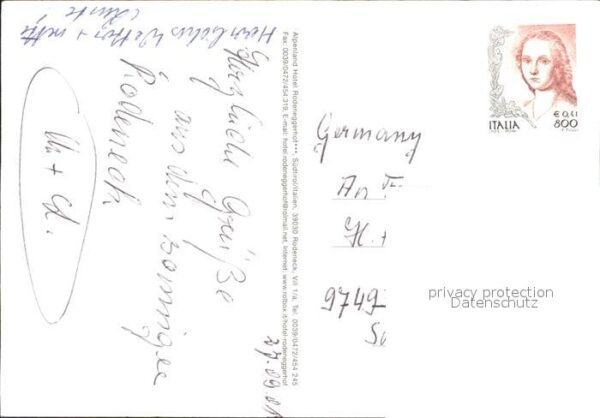 Herrliches Wetter + nette
Leute
Herzliche Grüße
aus dem sonnigen
Rodeneck
U. + Cl.
27.09.01
Alpenland Hotel Rodeneggerhof***, Südtirol/Italien, 39030 Rodeneck, Vill 1/a, Tel. 0039/0472/454 245
Fax: 0039/0472/454 319, E-mail: hotel.rodeneggerhof@rolmail.net, Internet: www.rolbox.it/hotel-rodeneggerhof
€ 0,41
ITALIA 800
Germany
An F
H.
9749
privacy protection
Datenschutz